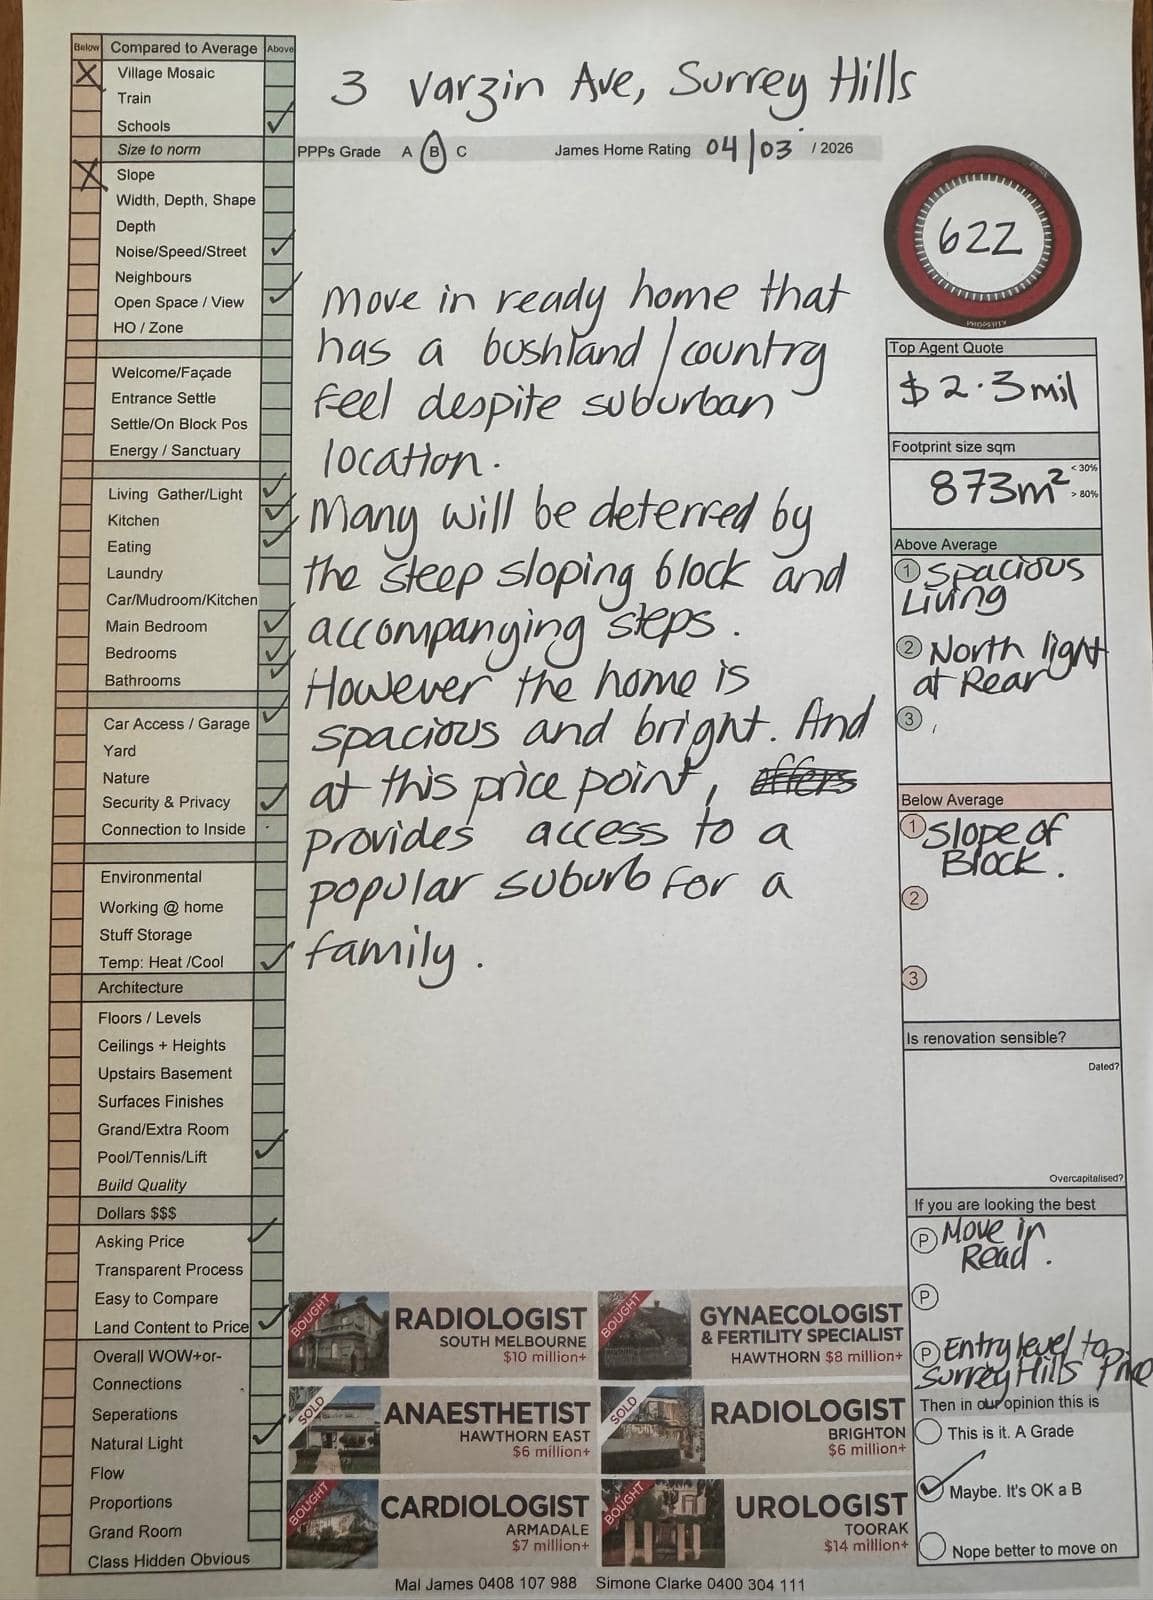 Below Compared to Average Above
Village Mosaic
Train
Schools
Size to norm
Slope
Width, Depth, Shape
Depth
Noise/Speed/Street
Neighbours
Open Space / View
HO / Zone
Welcome/Façade
Entrance Settle
Settle/On Block Pos
Energy / Sanctuary
Living Gather/Light
Kitchen
Eating
Laundry
Car/Mudroom/Kitchen
Main Bedroom
Bedrooms
Bathrooms
Car Access / Garage
Yard
Nature
Security & Privacy
Connection to Inside
Environmental
Working @ home
Stuff Storage
Temp: Heat /Cool
Architecture
Floors / Levels
Ceilings + Heights
Upstairs Basement
Surfaces Finishes
Grand/Extra Room
Pool/Tennis/Lift
Build Quality
Dollars $$$
Asking Price
Transparent Process
Easy to Compare
Land Content to Price
Overall WOW+or-
Connections
Seperations
Natural Light
Flow
Proportions
Grand Room
Class Hidden Obvious
3 Varzin Ave, Surrey Hills
PPPs Grade A B C James Home Rating 04/03 / 2026
move in ready home that
has a bushland/country
feel despite suburban
location.
Many will be deterred by
the steep sloping block and
accompanying steps.
However the home is
spacious and bright. And
at this price point, offers
provides access to a
popular suburb for a
family.
622
PROPERTY
Top Agent Quote
$2.3mil
Footprint size sqm
873m² < 30%
> 80%
Above Average
1 Spacious
Living
2 North light
at Rear
3
Below Average
1 Slope of
Block.
2
3
Is renovation sensible?
Dated?
Overcapitalised?
If you are looking the best
P Move in
Read.
P
P Entry level to
Surrey Hills Price
Then in our opinion this is
This is it. A Grade
Maybe. It's OK a B
Nope better to move on
BOUGHT
RADIOLOGIST
SOUTH MELBOURNE
$10 million+
BOUGHT
GYNAECOLOGIST
& FERTILITY SPECIALIST
HAWTHORN $8 million+
SOLD
ANAESTHETIST
HAWTHORN EAST
$6 million+
SOLD
RADIOLOGIST
BRIGHTON
$6 million+
BOUGHT
CARDIOLOGIST
ARMADALE
$7 million+
BOUGHT
UROLOGIST
TOORAK
$14 million+
Mal James 0408 107 988 Simone Clarke 0400 304 111